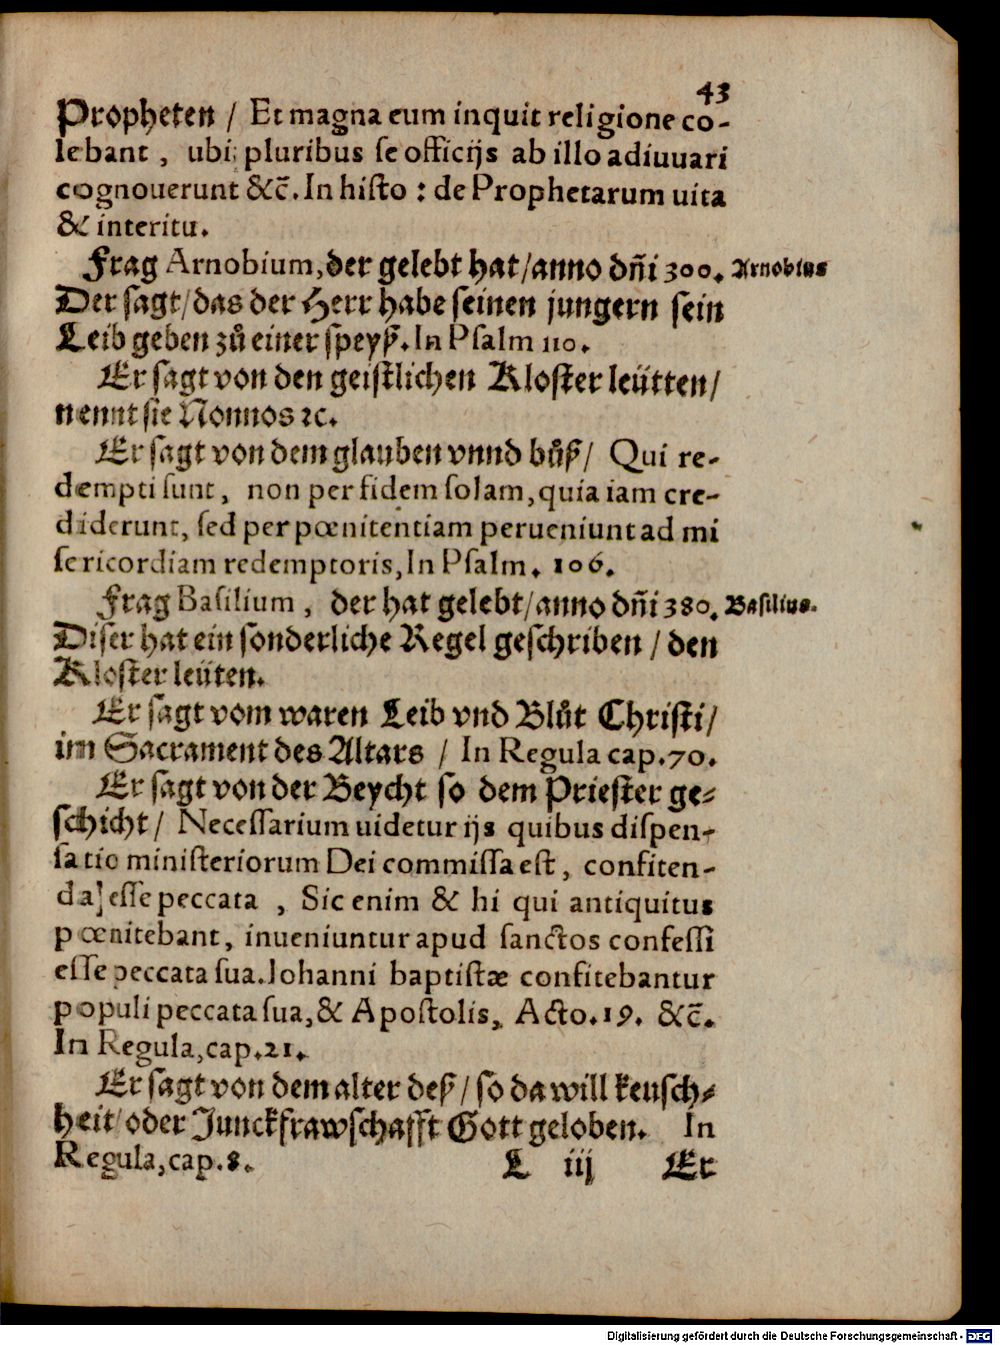 43
Propheten / Et magna eum inquit religione co-
lebant, ubi pluribus se officijs ab illo adiuuari
cognouerunt &c̄. In histo: de Prophetarum uita
& interitu.
Frag Arnobium, der gelebt hat/anno dn̄i 300. Arnobius
Der sagt/das der Herr habe seinen jungern sein
Leib geben zů einer speyß. In Psalm 110.
Er sagt von den geistlichen Kloster leütten/
nennt sie Nonnos ꝛc.
Er sagt von dem glauben vnnd bůß/ Qui re-
dempti sunt, non per fidem solam, quia iam cre-
diderunt, sed per pœnitentiam perueniunt ad mi
sericordiam redemptoris, In Psalm. 106.
Frag Basilium, der hat gelebt/anno dn̄i 380. Basilius.
Diser hat ein sonderliche Regel geschriben / den
Kloster leüten.
Er sagt vom waren Leib vnd Blůt Christi/
im Sacrament des Altars / In Regula cap. 70.
Er sagt von der Beycht so dem Priester ge-
schicht/ Necessarium uidetur ijs quibus dispen-
satio ministeriorum Dei commissa est, confiten-
da esse peccata, Sic enim & hi qui antiquitus
pœnitebant, inueniuntur apud sanctos confessi
esse peccata sua. Iohanni baptistæ confitebantur
populi peccata sua, & Apostolis, Acto. 19. &c̄.
In Regula, cap. 21.
Er sagt von dem alter deß/so da will keusch-
heit/oder Junckfrawschafft Gott geloben. In
Regula, cap. 8.
L iij Er
Digitalisierung gefördert durch die Deutsche Forschungsgemeinschaft - DFG